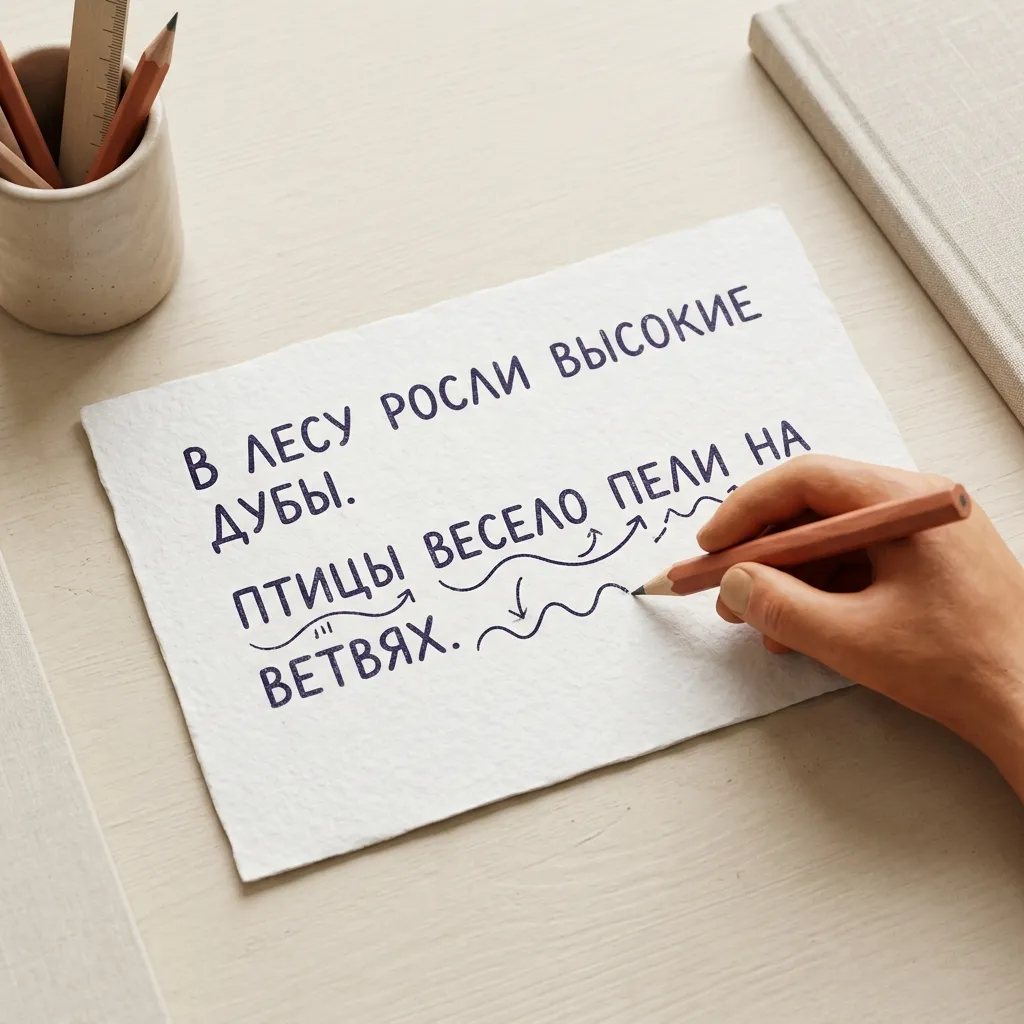 В ЛЕСУ РОСЛИ ВЫСОКИЕ
ДУБЫ.
ПТИЦЫ ВЕСЕЛО ПЕЛИ НА
ВЕТВЯХ.